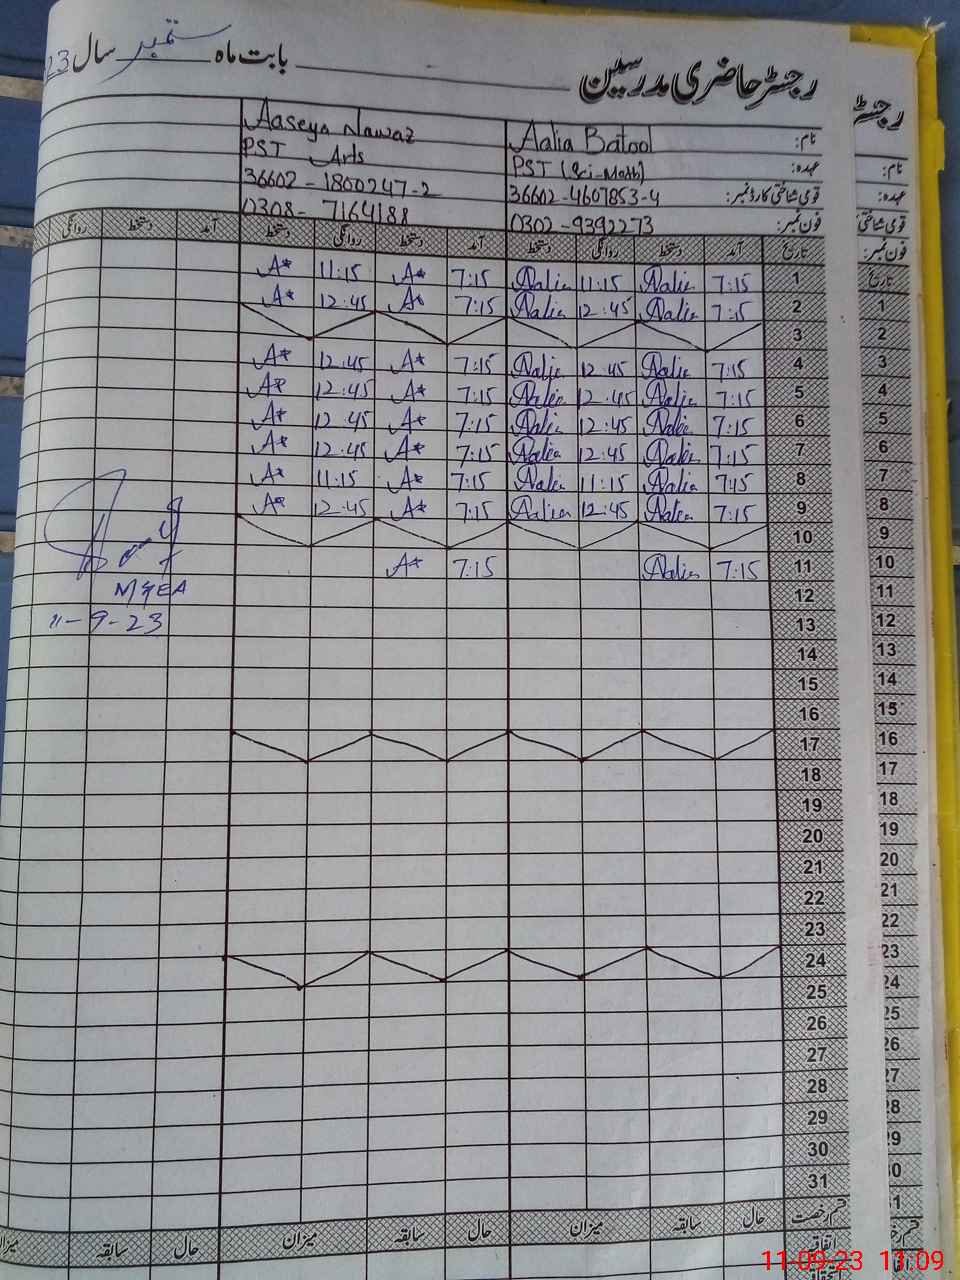 رجسٹر حاضری مدرسین بابت ماہ ستمبر سال 23
نام: Aalia Batool Aaseya Nawaz
عہدہ: PST (Sci-Math) PST Arts
قومی شناختی کارڈ نمبر: 36602-4607853-4 36602-1800247-2
فون نمبر: 0302-9392273 0308-7164188
تاریخ آمد دستخط روانگی دستخط آمد دستخط روانگی دستخط آمد دستخط روانگی
1 7:15 Aalia 11:15 Aalia 7:15 A* 11:15 A*
2 7:15 Aalia 12:45 Aalia 7:15 A* 12:45 A*
3
4 7:15 Aalia 12:45 Aalia 7:15 A* 12:45 A*
5 7:15 Aalia 12:45 Aalia 7:15 A* 12:45 A*
6 7:15 Aalia 12:45 Aalia 7:15 A* 12:45 A*
7 7:15 Aalia 12:45 Aalia 7:15 A* 12:45 A*
8 7:15 Aalia 11:15 Aalia 7:15 A* 11:15 A*
9 7:15 Aalia 12:45 Aalia 7:15 A* 12:45 A*
10
11 7:15 Aalia 7:15 A*
12
13
14
15
16
17
18
19
20
21
22
23
24
25
26
27
28
29
30
31
MEA
11-9-23
قسم رخصت حال سابقہ میزان حال سابقہ میزان حال سابقہ میزان
اتفاقیہ
رجسٹر
نام:
عہدہ:
قومی شناختی
فون نمبر:
تاریخ
1
2
3
4
5
6
7
8
9
10
11
12
13
14
15
16
17
18
19
20
21
22
23
24
25
26
27
28
29
30
31
11-09-23 11:09